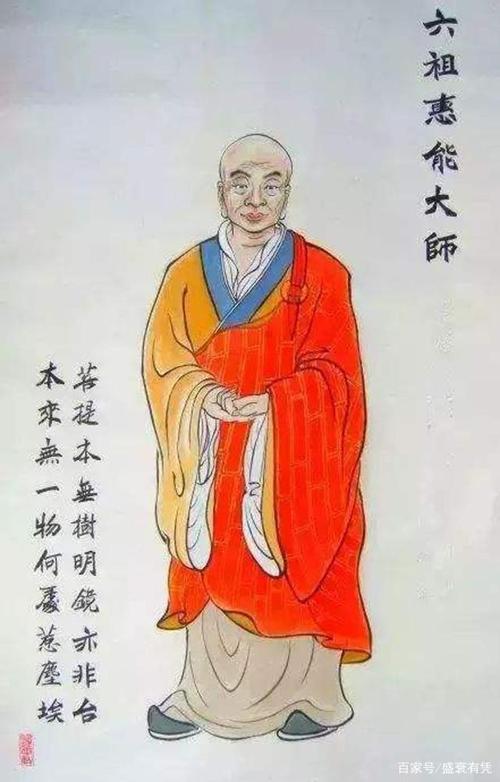 六祖惠能大師
菩提本無樹明鏡亦非台
本來無一物何處惹塵埃
百家号/盛衰有凭